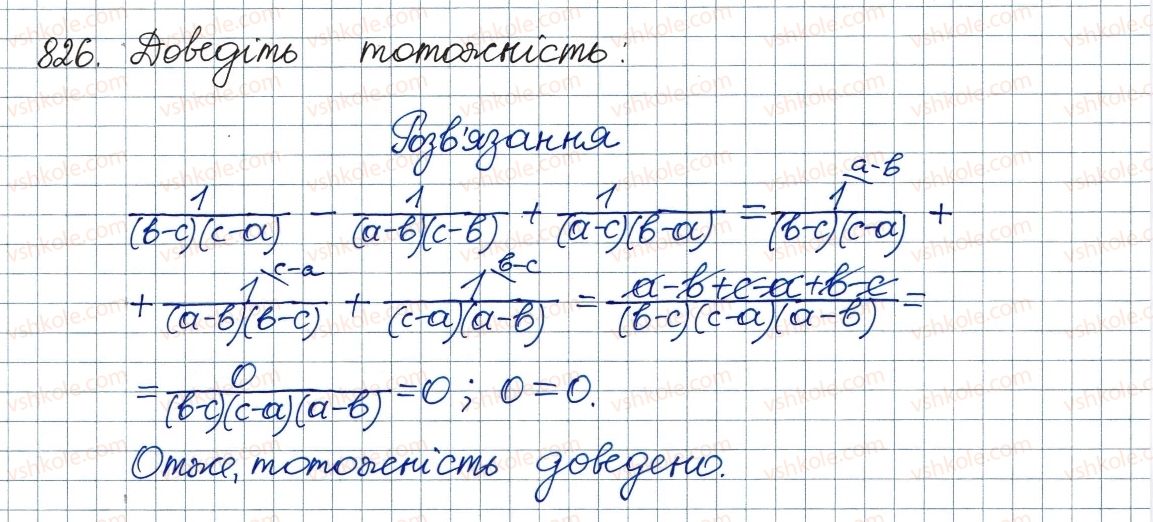 826. Доведіть тотожність:
Розв'язання
1/((b-c)(c-a)) - 1/((a-b)(c-b)) + 1/((a-c)(b-a)) = 1\a-b/((b-c)(c-a)) +
+ 1\c-a/((a-b)(b-c)) + 1\b-c/((c-a)(a-b)) = (a-b+c-a+b-c)/((b-c)(c-a)(a-b)) =
= 0/((b-c)(c-a)(a-b)) = 0; 0 = 0.
Отже, тотожність доведено.